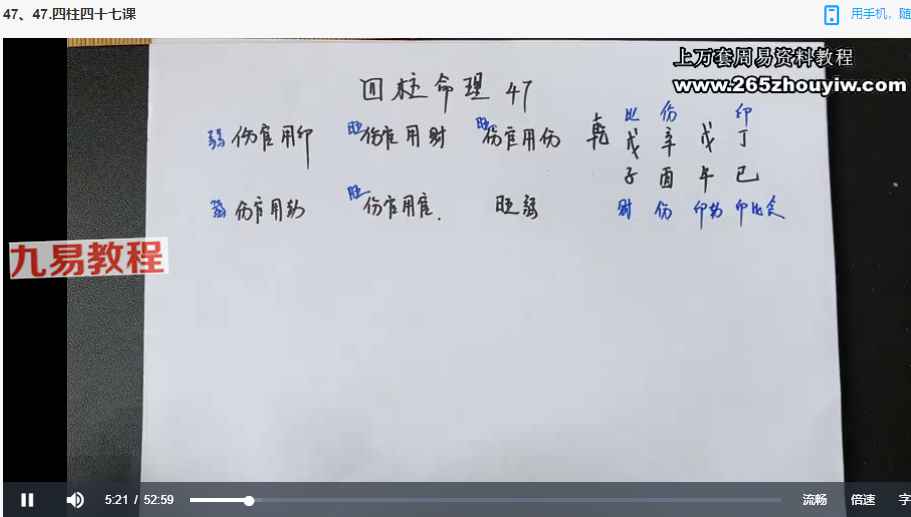 47、47.四柱四十七课
用手机，随
上万套周易资料教程
www.265zhouyiw.com
四柱命理 47
弱 伤官用印 旺 伤官用财 旺 伤官用伤
弱 伤官用劫 旺 伤官用官. 旺弱
比 伤 印
乾 戊 辛 戊 丁
子 酉 午 巳
财 伤 印劫 印比食
九易教程
5:21 / 52:59
流畅 倍速 字